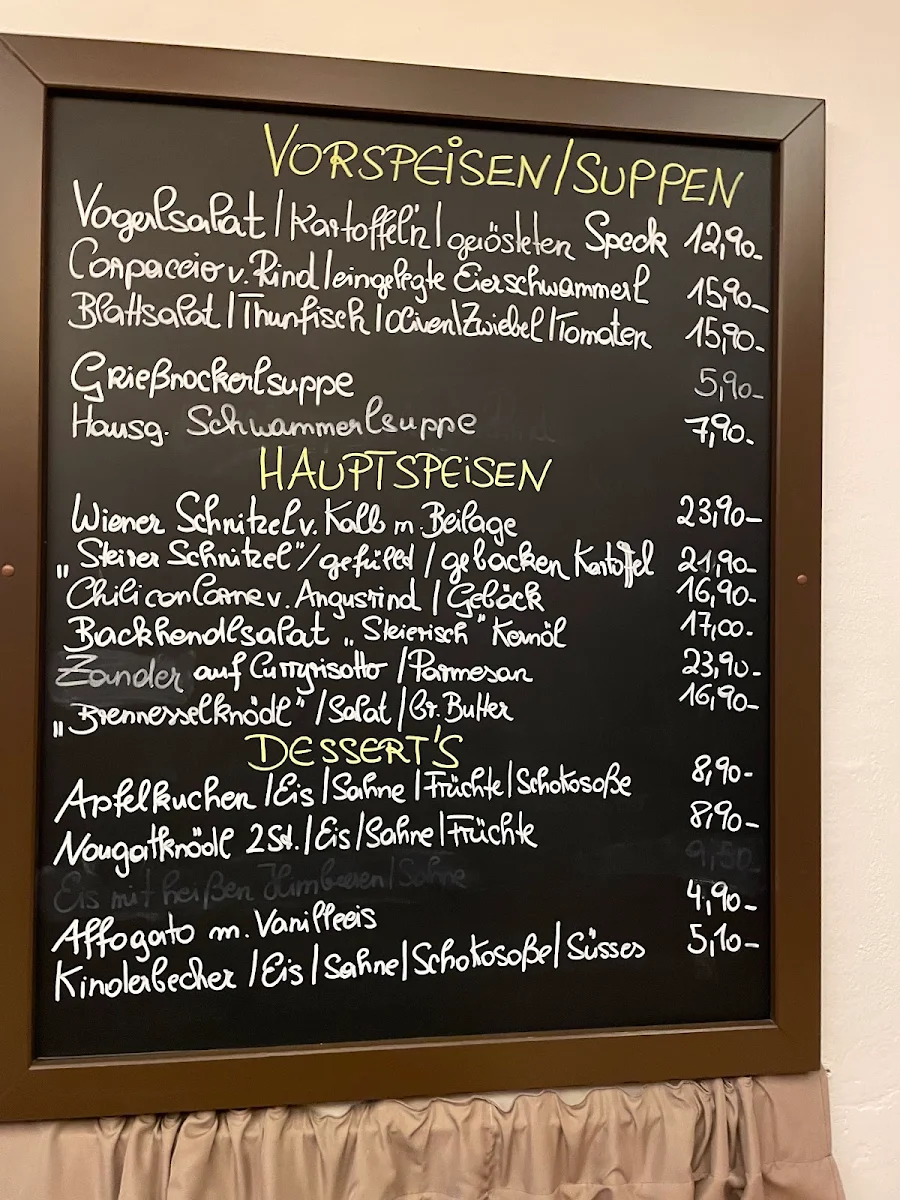 VORSPEISEN/SUPPEN
Vogerlsalat / Kartoffel'n / gerösteten Speck 12,90-
Carpaccio v. Rind / eingelegte Eierschwammerl 15,90-
Blattsalat / Thunfisch / Oliven \ Zwiebel / Tomaten 15,90-
Grießnockerlsuppe 5,90-
Hausg. Schwammerlsuppe 7,90-
HAUPTSPEISEN
Wiener Schnitzel v. Kalb m. Beilage 23,90-
„Steirer Schnitzel" / gefüllt / gebacken Kartoffel 21,90-
Chili con Carne v. Angusrind / Gebäck 16,90-
Backhendlsalat „Steierisch" Kernöl 17,00-
Zander auf Curryrisotto / Parmesan 23,90-
„Brennesselknödl" / Salat / Br. Butter 16,90-
DESSERT'S
Apfelkuchen / Eis / Sahne / Früchte / Schokosoße 8,90-
Nougatknödl 2St. / Eis / Sahne / Früchte 8,90-
Eis mit heißen Himbeeren / Sahne 9,50
Affogato m. Vanilleeis 4,90-
Kinderbecher / Eis / Sahne / Schokosoße / Süsses 5,10-